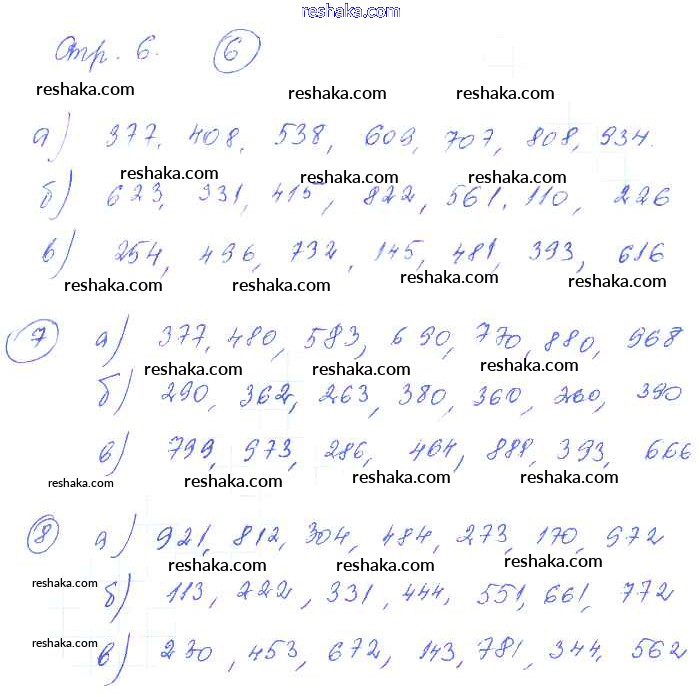 reshaka.com
Стр. 6. 6
reshaka.com reshaka.com reshaka.com
а) 377, 408, 538, 609, 707, 808, 934.
reshaka.com reshaka.com reshaka.com
б) 623, 931, 415, 822, 561, 110, 226
reshaka.com reshaka.com reshaka.com
в) 254, 496, 732, 145, 481, 393, 616
reshaka.com reshaka.com reshaka.com reshaka.com
7 а) 377, 480, 583, 690, 770, 880, 968
reshaka.com reshaka.com reshaka.com
б) 290, 362, 263, 380, 360, 260, 390
reshaka.com reshaka.com reshaka.com
в) 799, 973, 286, 464, 888, 393, 666
reshaka.com reshaka.com reshaka.com reshaka.com
8 а) 921, 812, 304, 484, 273, 170, 972
reshaka.com reshaka.com reshaka.com reshaka.com
б) 113, 222, 331, 444, 551, 661, 772
reshaka.com reshaka.com reshaka.com reshaka.com
в) 230, 453, 672, 143, 781, 344, 562